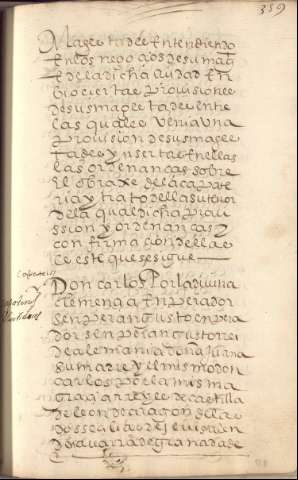 359
Magestades entendiendo
en los negocios de su mag
e de la dicha ciudad en
bio ciertas provisiones
de sus magestades entre
las quales venia una
provision de sus mages
tades ynserta en ellas
las ordenanças sobre
el obraxe de la çapate
ria y trato della su tenor
de la qual dicha provi
ssion y ordenanças y
confirmacion dellas
es este que se sigue
Don carlos Por la divina
clemençia enperador
senper augusto enpera
dor senper augusto rrei
de alemania doña Juana
su madre y el mismo don
carlos por la misma
graçia rreyes de castilla
de leon de aragon de las
dos seçilias de Jerusalen
de navarra de granada de